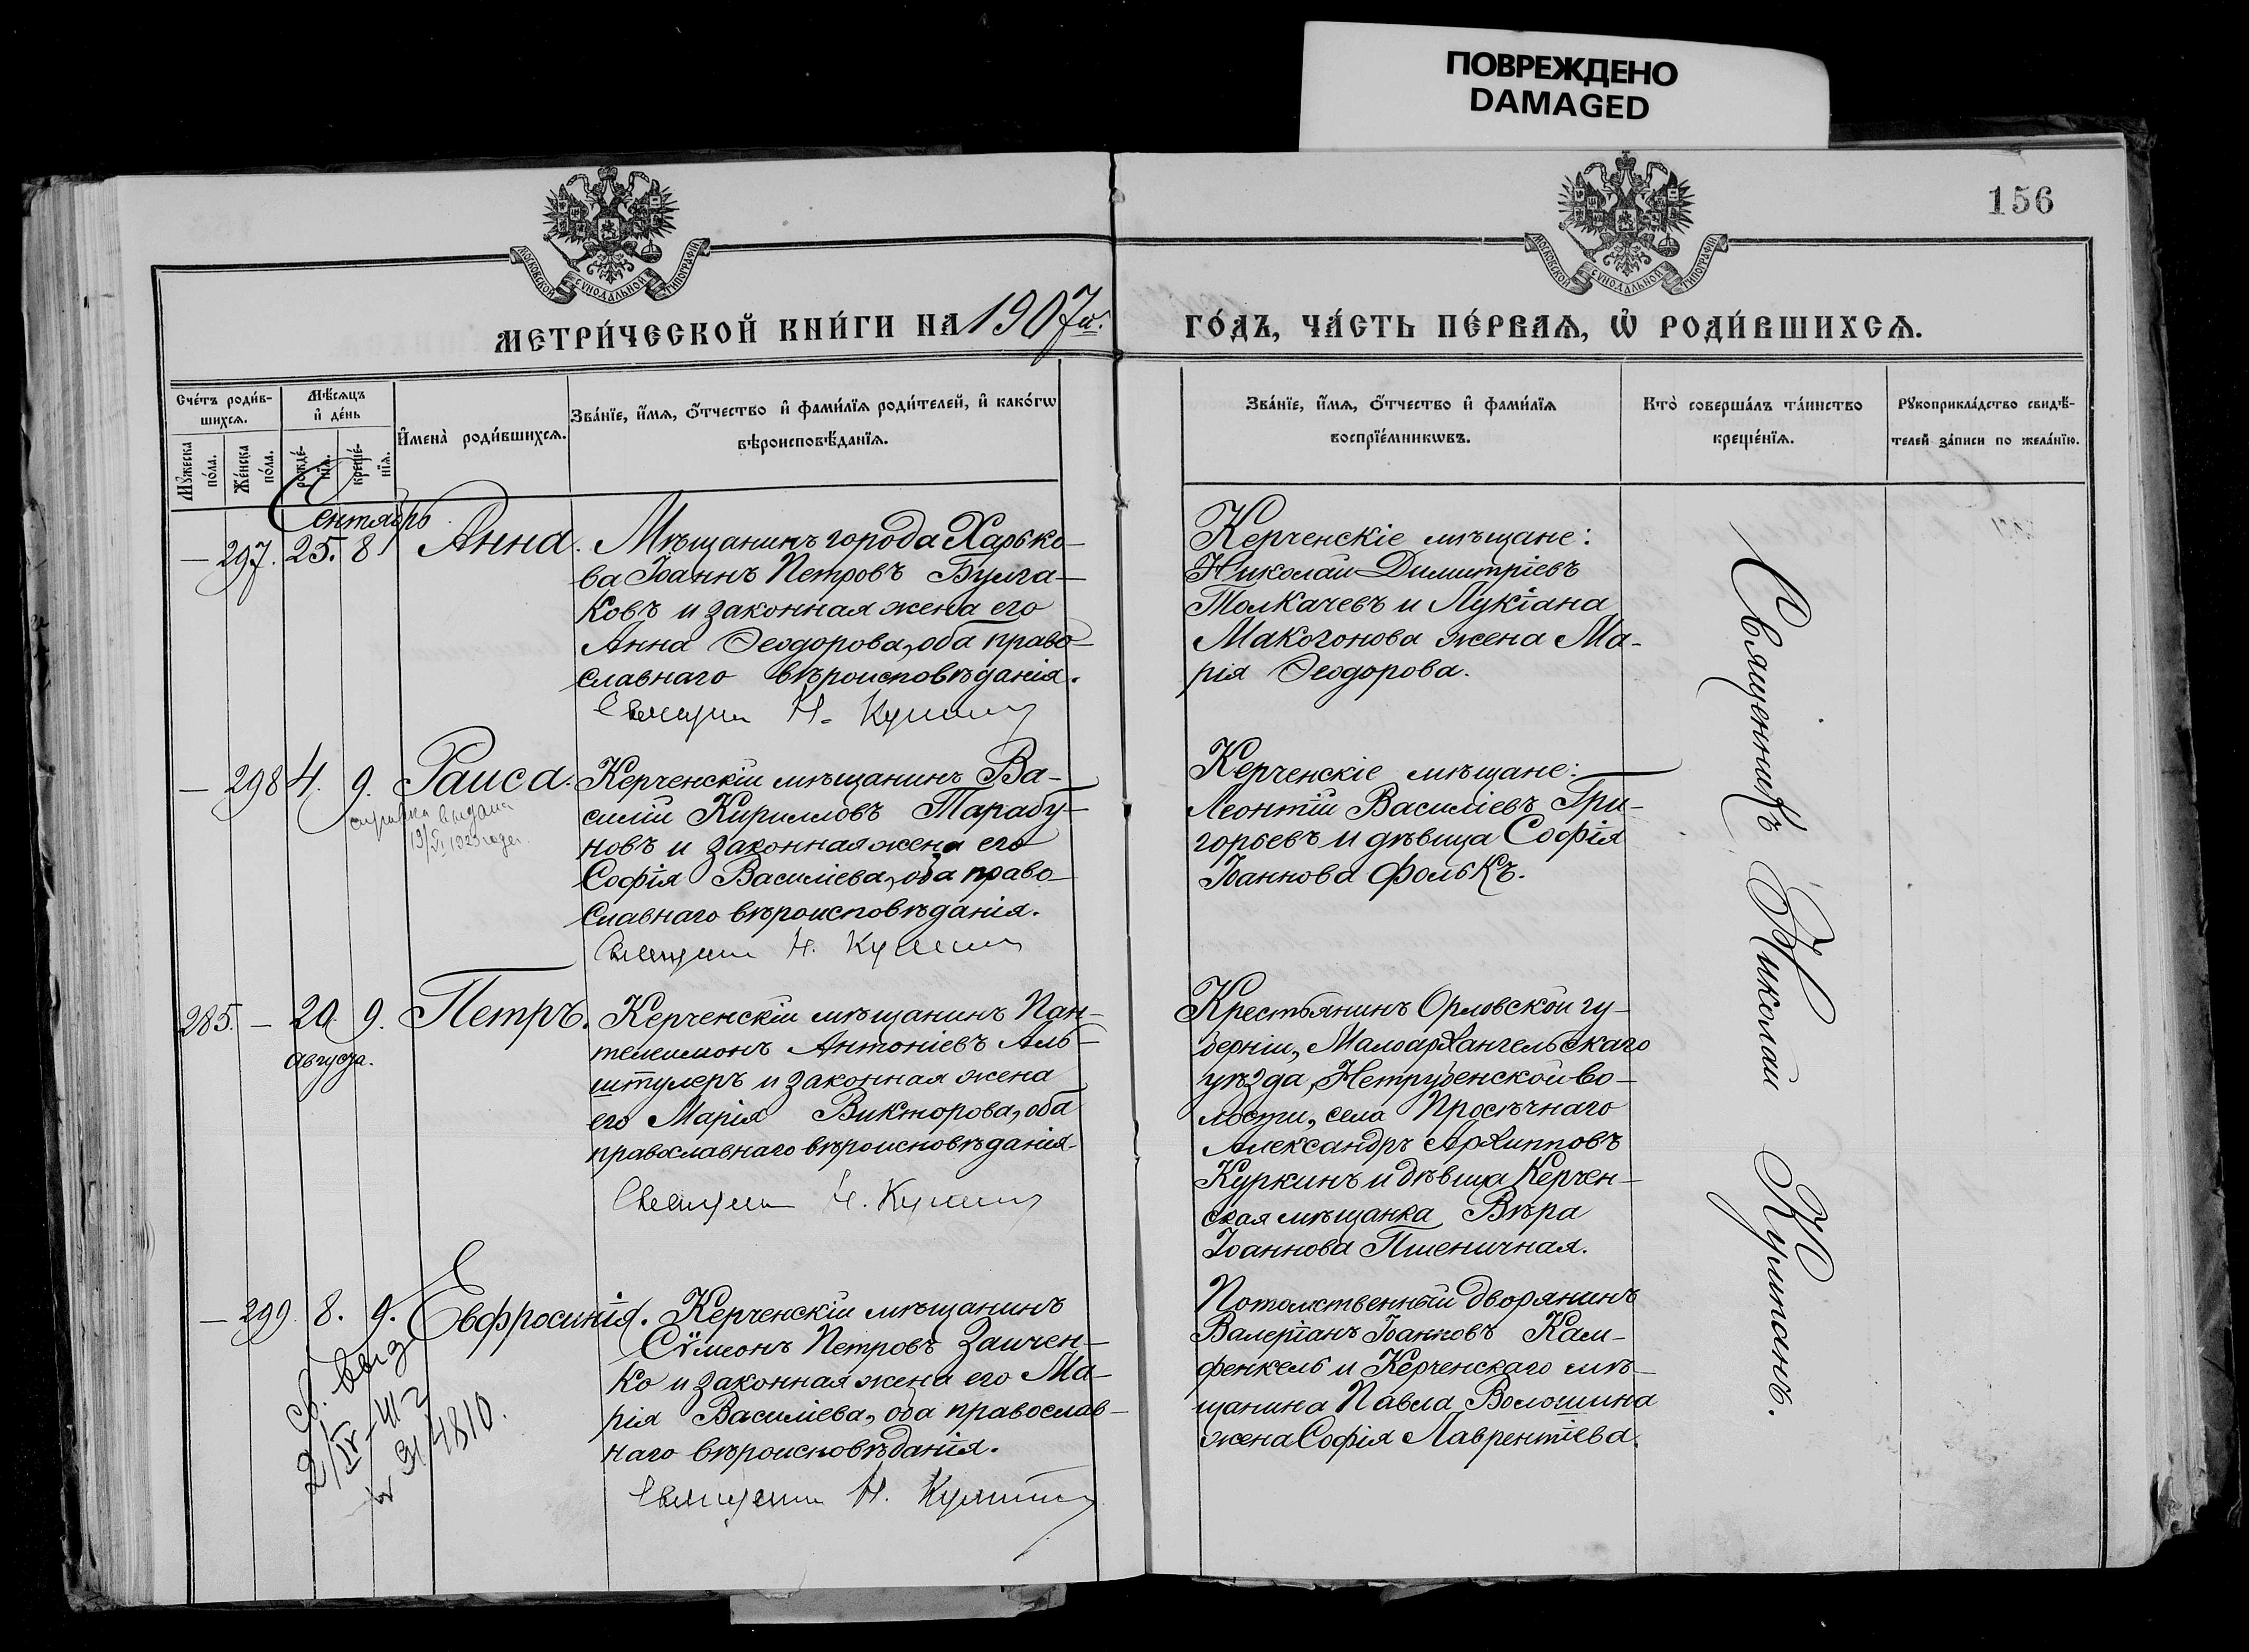 ПОВРЕЖДЕНО
DAMAGED
156
МОСКОВСКОЙ СѴНОДАЛЬНОЙ ТИПОГРАФІИ
МОСКОВСКОЙ СѴНОДАЛЬНОЙ ТИПОГРАФІИ
МЕТРИ́ЧЕСКОЙ КНИ́ГИ НА 1907й.
ГО́ДЪ, ЧА́СТЬ ПЕ́РВАѦ, Ѡ҆ РОДИ́ВШИХСѦ.
Сче́тъ роди́в-
шихсѧ.
Мѣ́сѧцъ
и҆ де́нь
И҆мена̀ роди́вшихсѧ.
Зва́нїе, и҆́мѧ, ѻ҆́тчество и҆ фами́лїѧ роди́телей, и҆ како́гѡ
вѣроисповѣ́данїѧ.
Мꙋ́жеска
по́ла.
Же́нска
по́ла.
рожде́-
нїѧ.
креще́-
нїѧ.
Зва́нїе, и҆́мѧ, ѻ҆́тчество и҆ фами́лїѧ
воспрїе́мникѡвъ.
Кто̀ соверша́лъ та́инство
креще́нїѧ.
Рꙋкоприкла́дство свидѣ́-
телей за́писи по жела́нїю.
Сентябрь
— 297. 25. 8 Анна. Мѣщанинъ города Харько-
ва Іоаннъ Петровъ Булга-
ковъ и законная жена его
Анна Ѳеодорова, оба право-
славнаго вѣроисповѣданія.
Священн Н. Купман
Керченскіе мѣщане:
Николай Димитріевъ
Толкачевъ и Лукіана
Макогонова жена Ма-
рія Ѳеодорова.
— 298 4. 9. Раиса. Керченскій мѣщанинъ Ва-
силій Кирилловъ Тарабу-
новъ и законная жена его
Софія Василіева, оба право-
славнаго вѣроисповѣданія.
справка выдана
19/VI 1923 года.
Керченскіе мѣщане:
Леонтій Василіевъ Гри-
горьевъ и дѣвица Софія
Іоаннова Фолькъ.
285. — 20. 9. Петръ. Керченскій мѣщанинъ Пан-
Августа.
телеимонъ Антоніевъ Аль-
штулеръ и законная жена
его Марія Викторова, оба
православнаго вѣроисповѣданія
Крестьянинъ Орловской гу-
берніи, Малоархангельскаго
уѣзда, Нетрубенской во-
лости, села Просѣчнаго
Александръ Архипповъ
Куркинъ и дѣвица Керчен-
ская мѣщанка Вѣра
Іоаннова Пшеничная.
— 299. 8. 9. Евфросинія. Керченскій мѣщанинъ
Сѵмеонъ Петровъ Заичен-
ко и законная жена его Ма-
рія Василіева, оба православ-
наго вѣроисповѣданія.
св. выд.
4810.
Потомственный дворянинъ
Валеріанъ Іоанновъ Кам-
фенкель и Керченскаго мѣ-
щанина Павла Волошина
жена Софія Лаврентіева.
Священникъ Николай